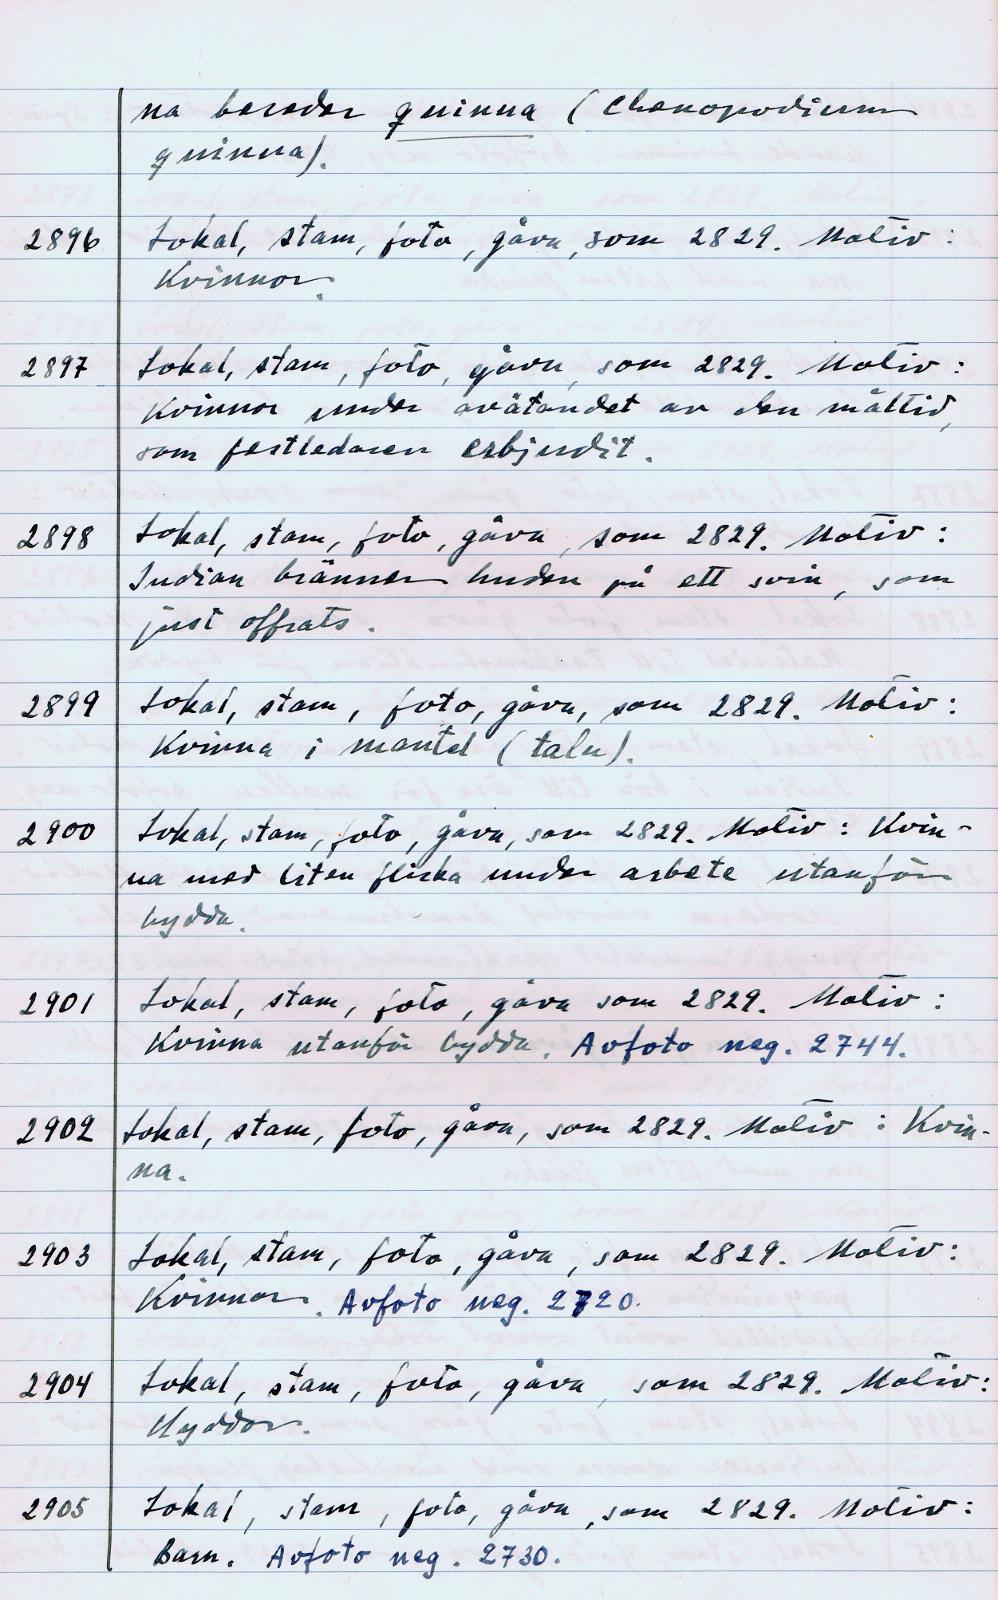 na bereder quinna (Chenopodium
quinna).
2896 Lokal, stam, foto, gåva, som 2829. Motiv:
Kvinnor.
2897 Lokal, stam, foto, gåva, som 2829. Motiv:
Kvinnor under avätandet av den måltid,
som festledaren erbjudit.
2898 Lokal, stam, foto, gåva, som 2829. Motiv:
Indian bränner huden på ett svin, som
just offrats.
2899 Lokal, stam, foto, gåva, som 2829. Motiv:
Kvinna i mantel (talu).
2900 Lokal, stam, foto, gåva, som 2829. Motiv: Kvin-
na med liten flicka under arbete utanför
hydda.
2901 Lokal, stam, foto, gåva som 2829. Motiv:
Kvinna utanför hydda. Avfoto neg. 2744.
2902 Lokal, stam, foto, gåva, som 2829. Motiv: Kvin-
na.
2903 Lokal, stam, foto, gåva, som 2829. Motiv:
Kvinnor. Avfoto neg. 2720.
2904 Lokal, stam, foto, gåva, som 2829. Motiv:
Hyddor.
2905 Lokal, stam, foto, gåva, som 2829. Motiv:
Barn. Avfoto neg. 2730.